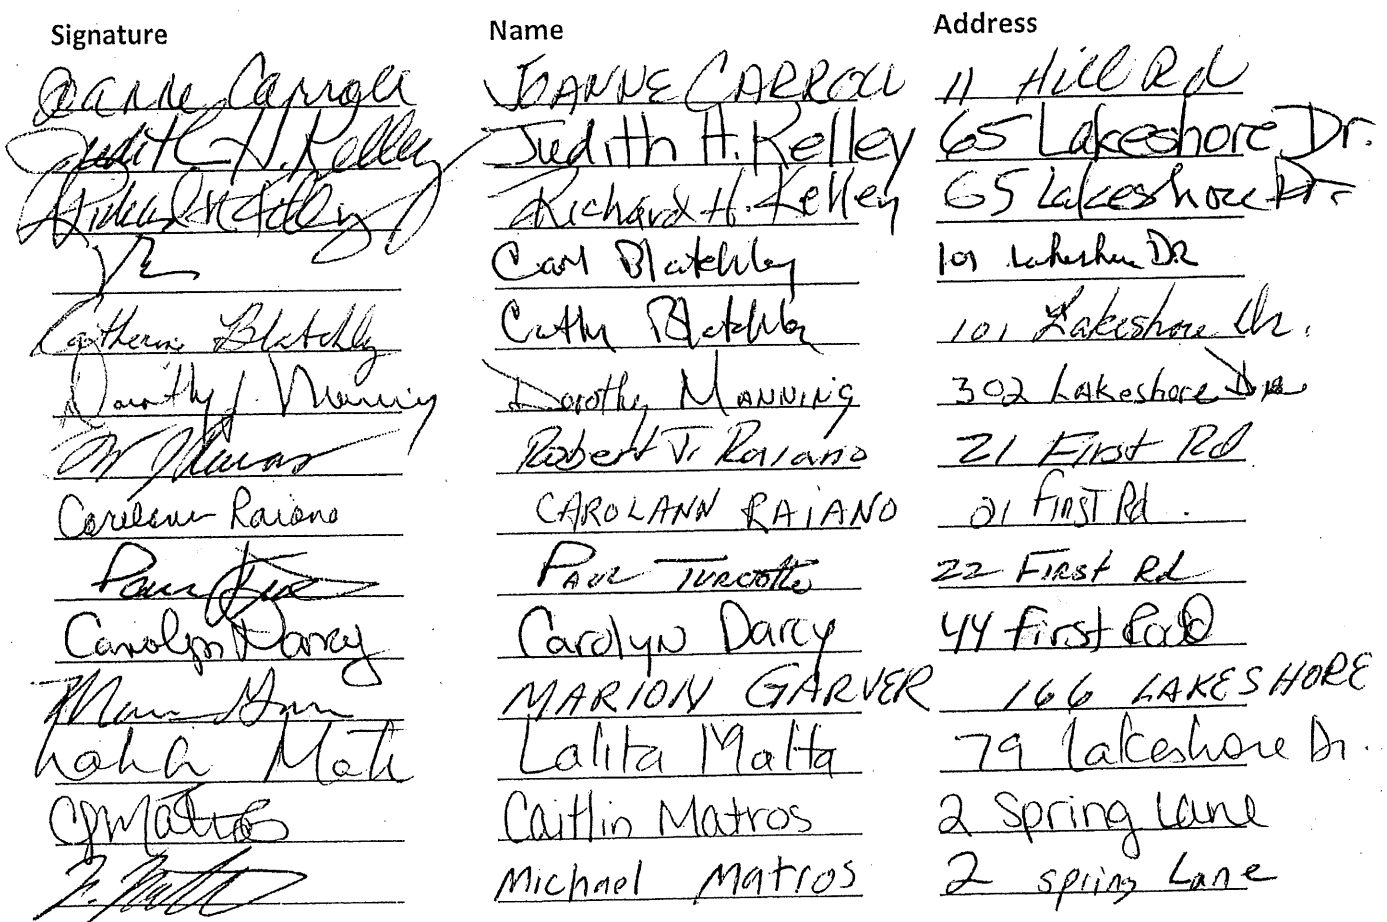 Signature Name Address
Joanne Carroll JOANNE CARROLL 11 Hill Rd
Judith H. Kelley Judith H. Kelley 65 Lakeshore Dr.
Richard H. Kelley Richard H. Kelley 65 Lakeshore Dr.
Carl Blatchley 101 Lakeshore DR
Catherine Blatchley Cathy Blatchley 101 Lakeshore Dr.
Dorothy J. Manning Dorothy MANNING 302 Lakeshore Drive
Robert J. Raiano 21 First Rd
Carolann Raiano CAROLANN RAIANO 21 First Rd.
Paul PAUL TURCOTTE 22 First Rd
Carolyn Darcy Carolyn Darcy 44 First Road
MARION GARVER 166 LAKESHORE
Lalita Matta 79 Lakeshore Dr.
CJMatros Caitlin Matros 2 Spring Lane
Michael Matros 2 spring Lane